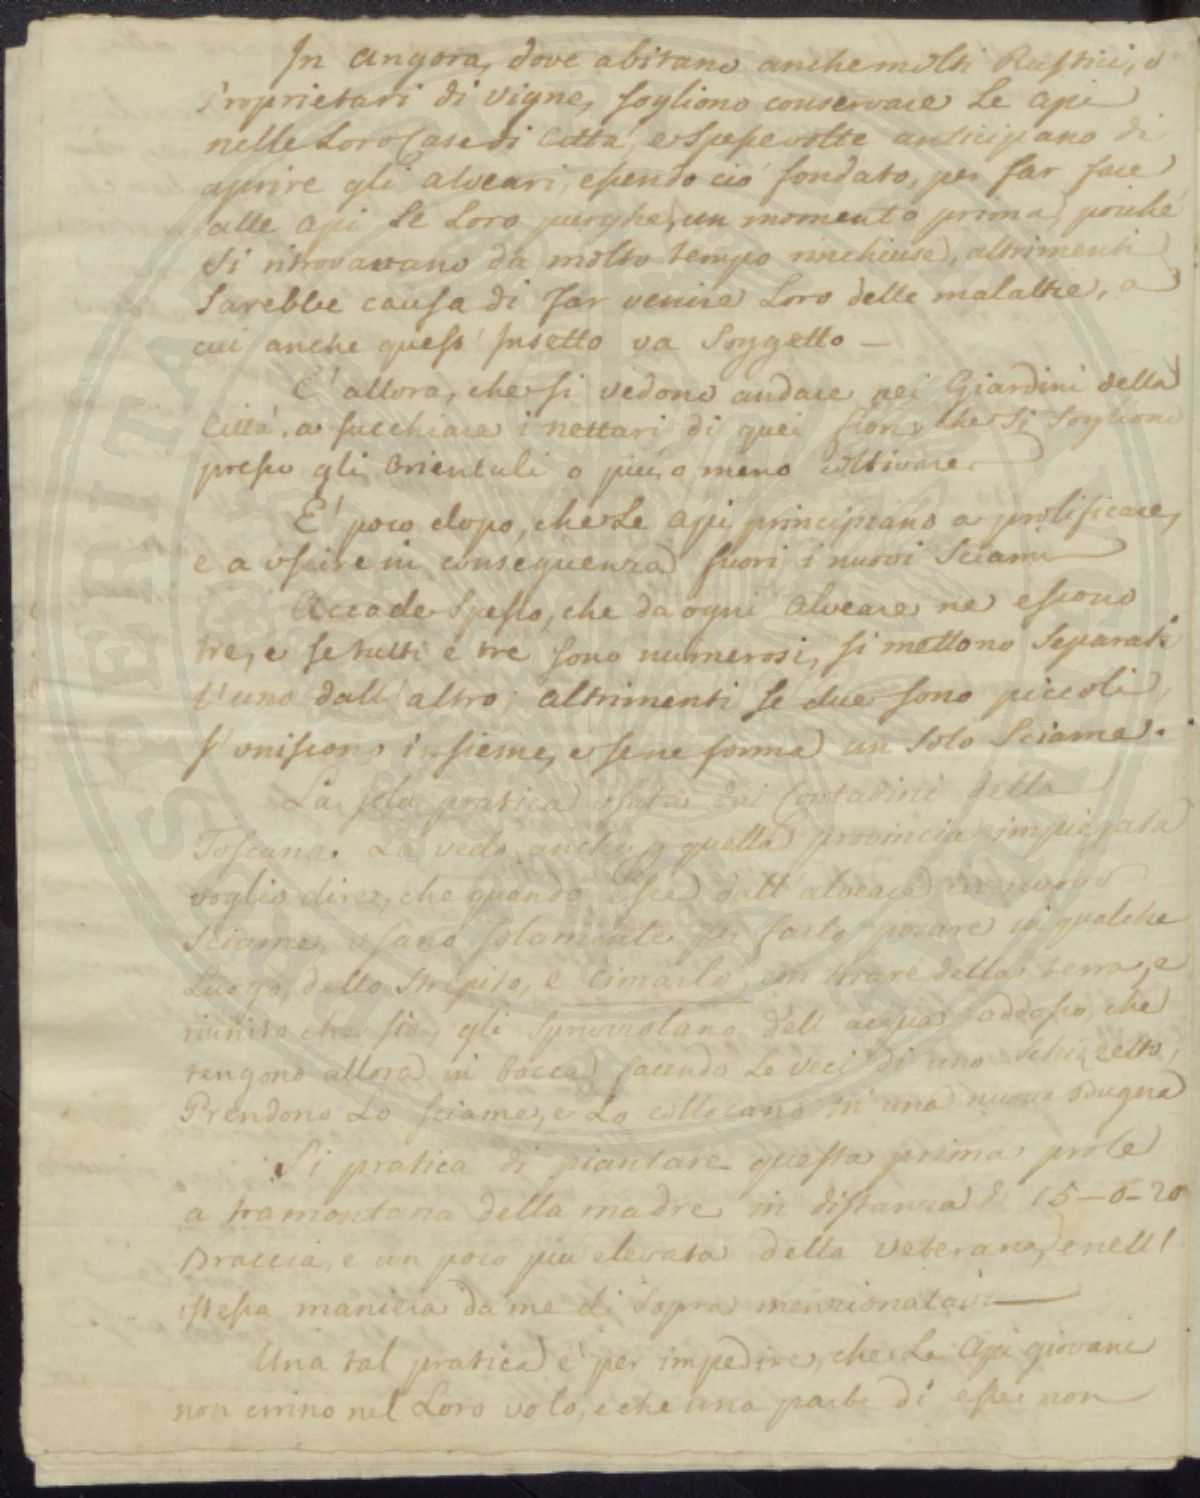 In Angora, dove abitano anche molti Rustici, o
Proprietari di vigne, sogliono conservare Le Api
nelle Loro Case di Città, e spesse volte anticipano di
aprire gli alveari, essendo ciò fondato, per far fare
alle Api Le Loro purghe, un momento prima, poiché
Si ritrovavano da molto tempo rinchiuse, altrimenti
Sarebbe causa di far venire Loro delle malattie, a
cui anche quest' Insetto va Soggetto —
E' allora, che si vedono andare nei Giardini della
Città, a succhiare i nettari di quei fiori che Si Sogliono
presso gli Orientali o più, o meno coltivare
E' poco dopo, che Le Api principiano a prolificare,
e a uscire in conseguenza fuori i nuovi Sciami
Accade Spesso, che da ogni Alveare ne escono
tre, e se tutti e tre sono numerosi, si mettono Separati
l'uno dall' altro, altrimenti se due sono piccoli
s' uniscono insieme, e se ne forma un Solo Sciame.
La sola pratica usata dai Contadini della
Toscana. La vedo anche quella provincia impiegata
voglio dire, che quando esce dall' alveare un nuovo
Sciame, usano solamente per farlo posare in qualche
Luogo, dello Strepito, e Cimarlo, con tirare della terra, e
riunito che sia, gli Spruzzolano dell' acqua addosso, che
tengono allora in bocca facendo Le veci di uno Schizzetto,
Prendono Lo sciame, e Lo collocano in una nuova Bugna
Si pratica di piantare questa prima prole
a tramontana della madre in distanza di 15-o-20
Braccia, e un poco più elevata della veterana, e nell'
istessa maniera da me di Sopra menzionatavi —
Una tal pratica è per impedire, che Le Api giovani
non errino nel Loro volo, e che una parte di esse non